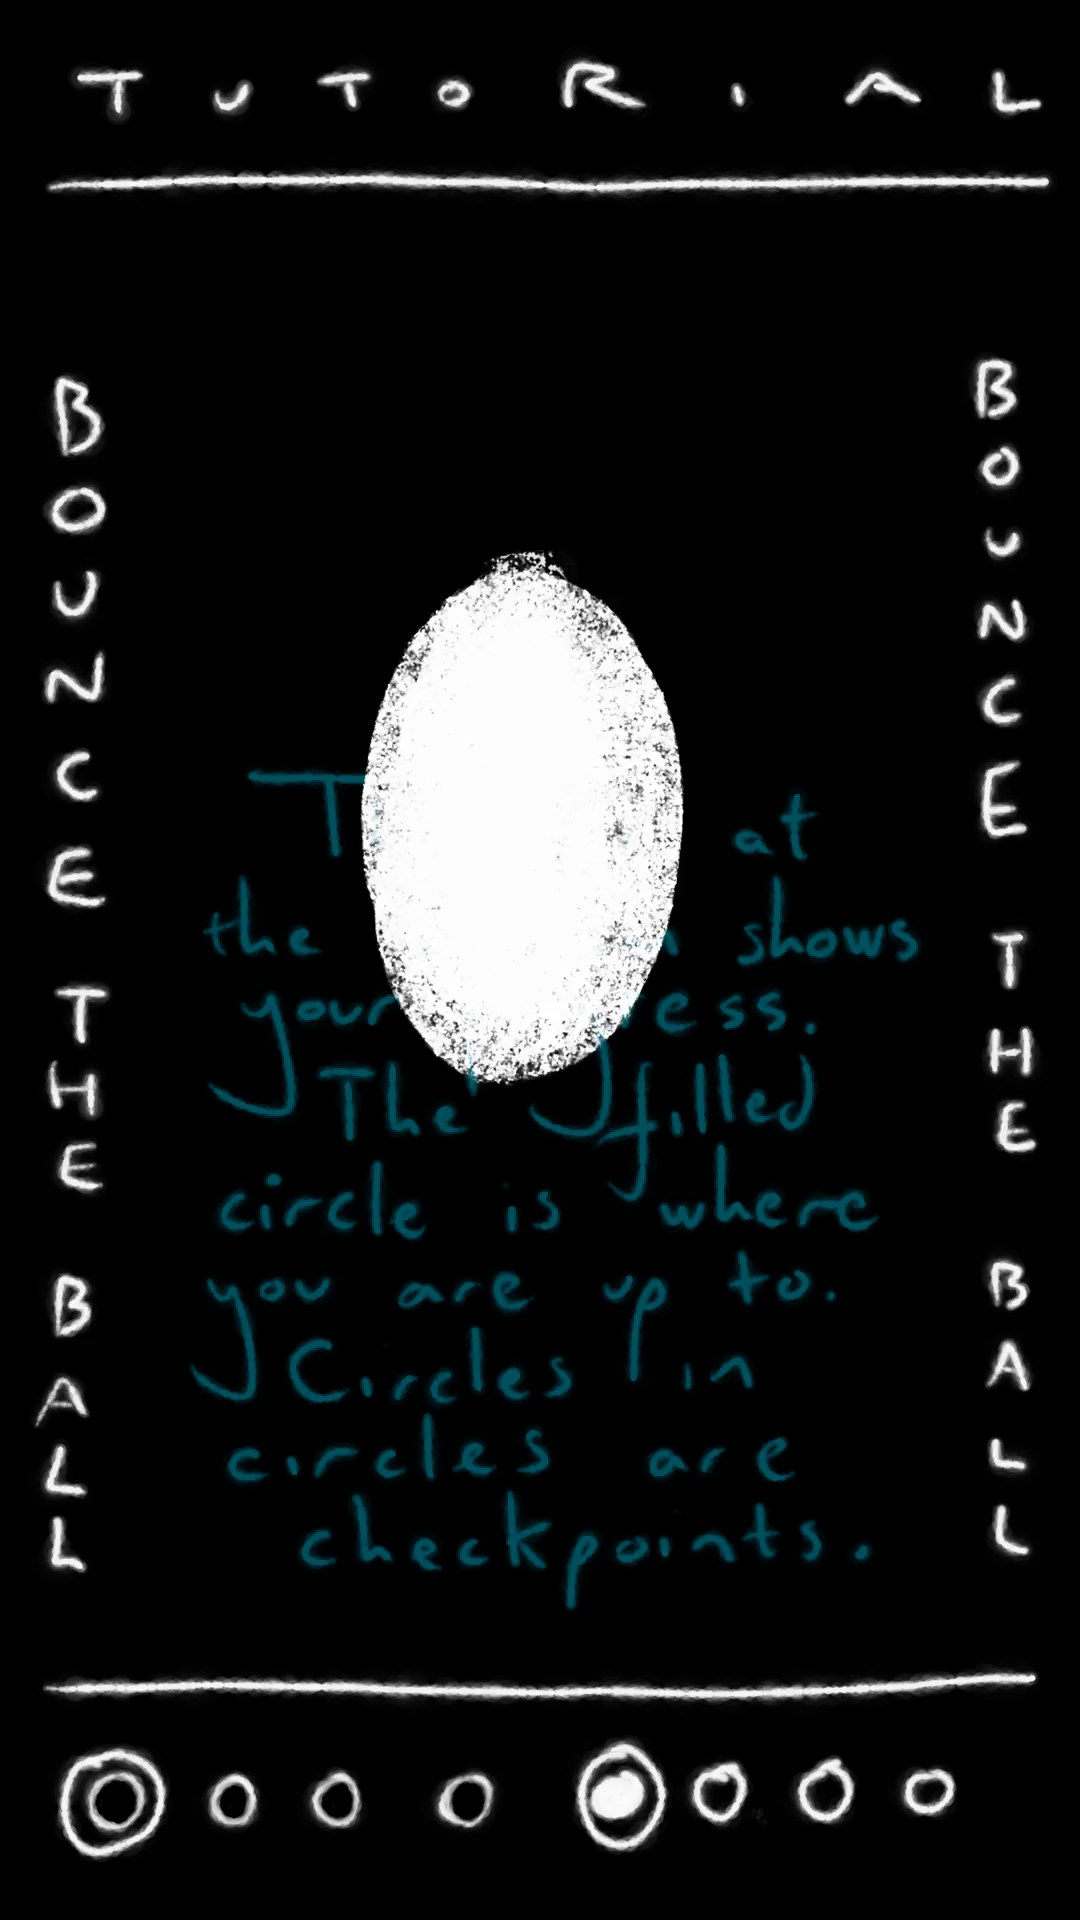 TUTORIAL
BOUNCE THE BALL
at
the shows
your
The filled
circle is where
you are up to.
Circles in
circles are
checkpoints.
BOUNCE THE BALL